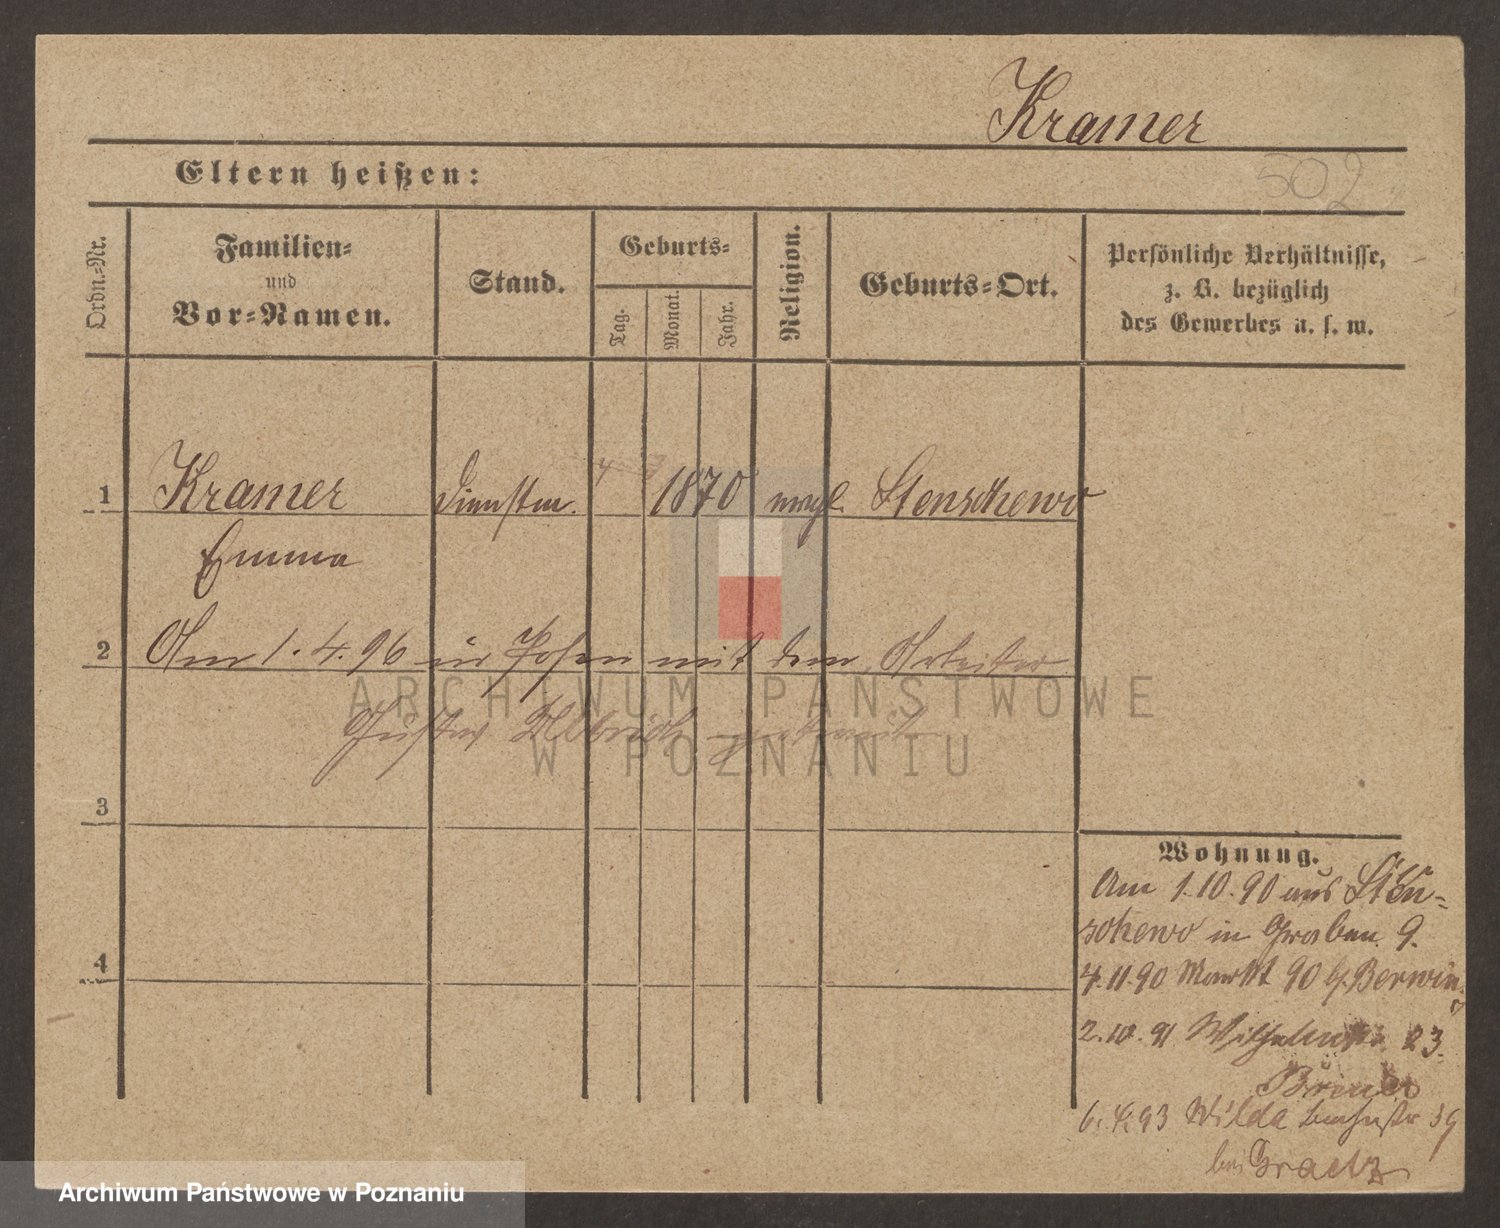 Kramer
502
Eltern heißen:
Ordn.-Nr.
Familien-
und
Vor-Namen.
Stand.
Geburts-
Tag.
Monat.
Jahr.
Religion.
Geburts-Ort.
Persönliche Verhältnisse,
z. B. bezüglich
des Gewerbes u. s. w.
1 Kramer Dienstm. 1870 evgl. Stenschewo
Emma
2 Am 1. 4. 96 in Posen mit dem Arbeiter
Gustav
ARCHIWUM PAŃSTWOWE
W POZNANIU
3
4
Wohnung.
Am 1. 10. 90 aus Sten-
schewo in Graben 9.
4. 11. 90 Markt 90 b. Berwin
2. 10. 91 Wilhelmstr. 23.
6. 4. 93 Wilda 39
bei Graetz
Archiwum Państwowe w Poznaniu